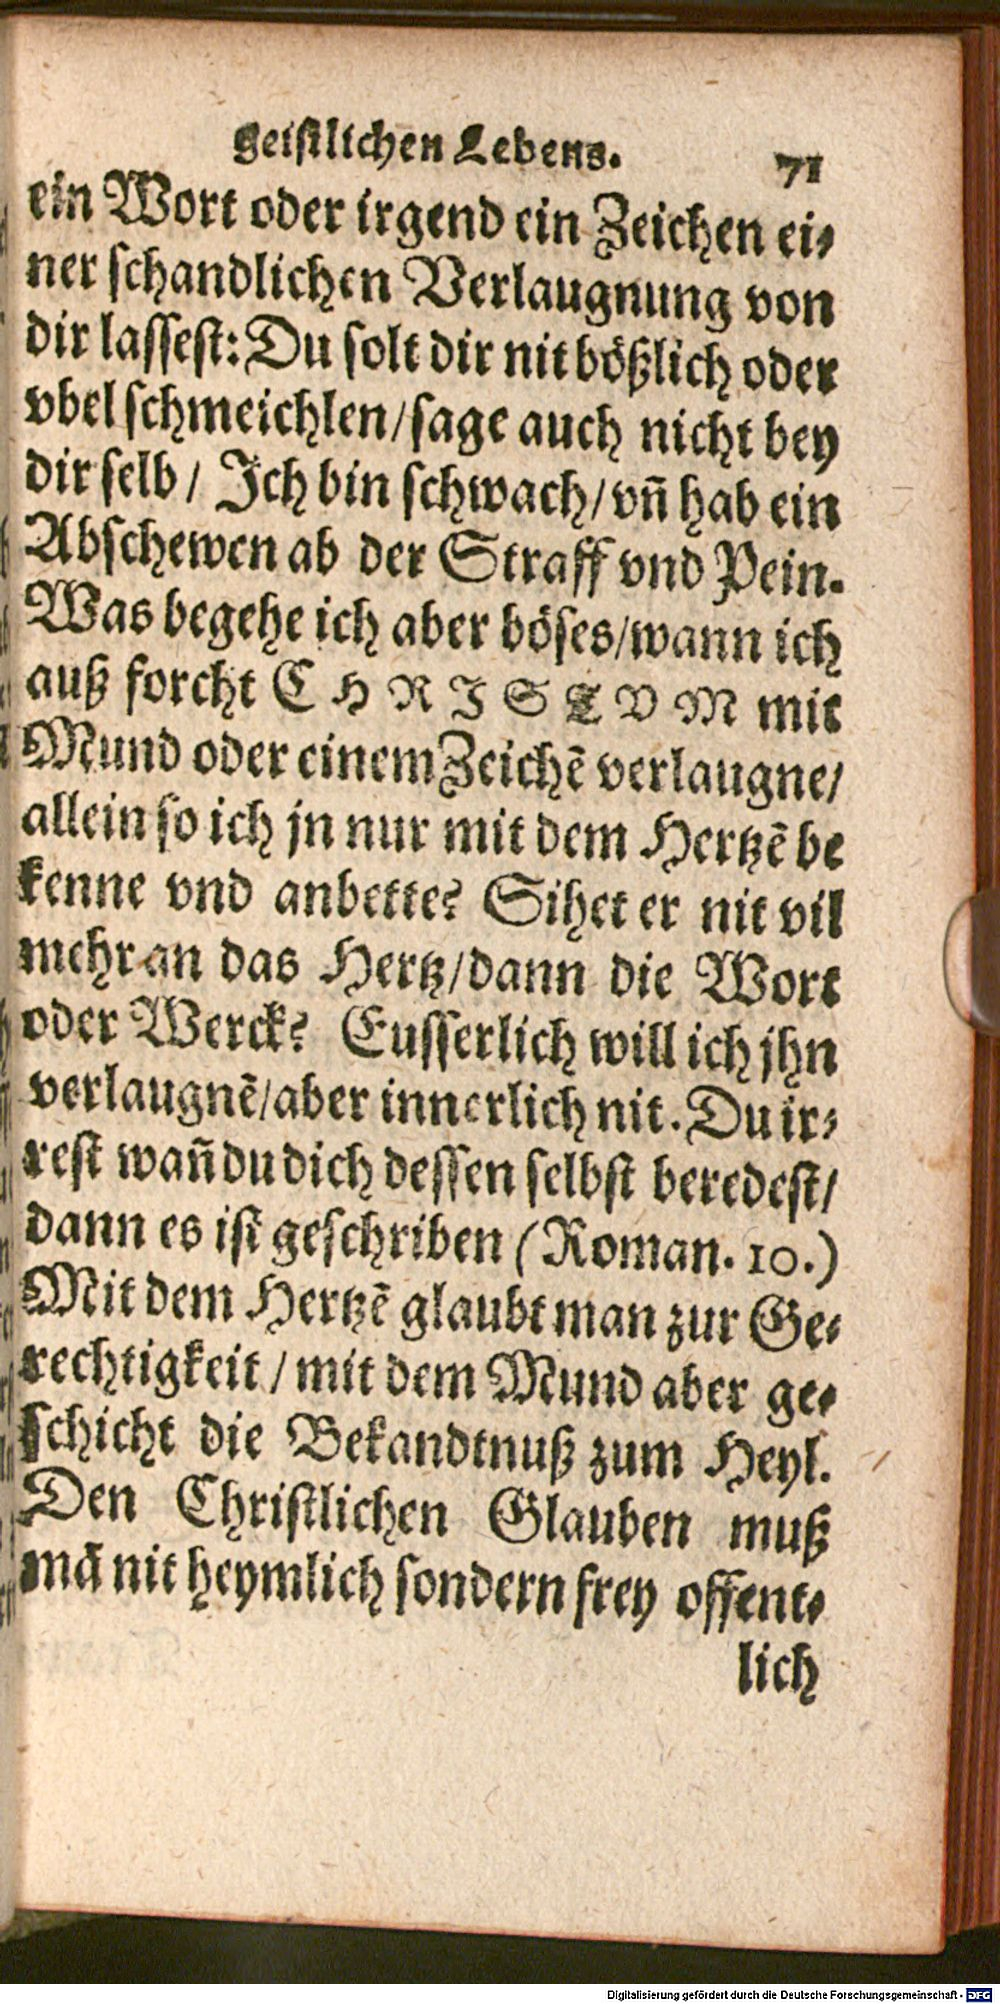 geistlichen Lebens. 71
ein Wort oder irgend ein Zeichen ei-
ner schandlichen Verlaugnung von
dir lassest: Du solt dir nit bößlich oder
vbel schmeichlen/ sage auch nicht bey
dir selb/ Ich bin schwach/ vñ hab ein
Abschewen ab der Straff vnd Pein.
Was begehe ich aber böses/ wann ich
auß forcht CHRISTVM mit
Mund oder einem Zeichẽ verlaugne/
allein so ich jn nur mit dem Hertzẽ be
kenne vnd anbette? Sihet er nit vil
mehr an das Hertz/ dann die Wort
oder Werck? Eusserlich will ich jhn
verlaugnẽ/ aber innerlich nit. Du ir-
rest wañ du dich dessen selbst beredest/
dann es ist geschriben (Roman. 10.)
Mit dem Hertzẽ glaubt man zur Ge-
rechtigkeit/ mit dem Mund aber ge-
schicht die Bekandtnuß zum Heyl.
Den Christlichen Glauben muß
mã nit heymlich sondern frey offent-
lich
Digitalisierung gefördert durch die Deutsche Forschungsgemeinschaft - DFG